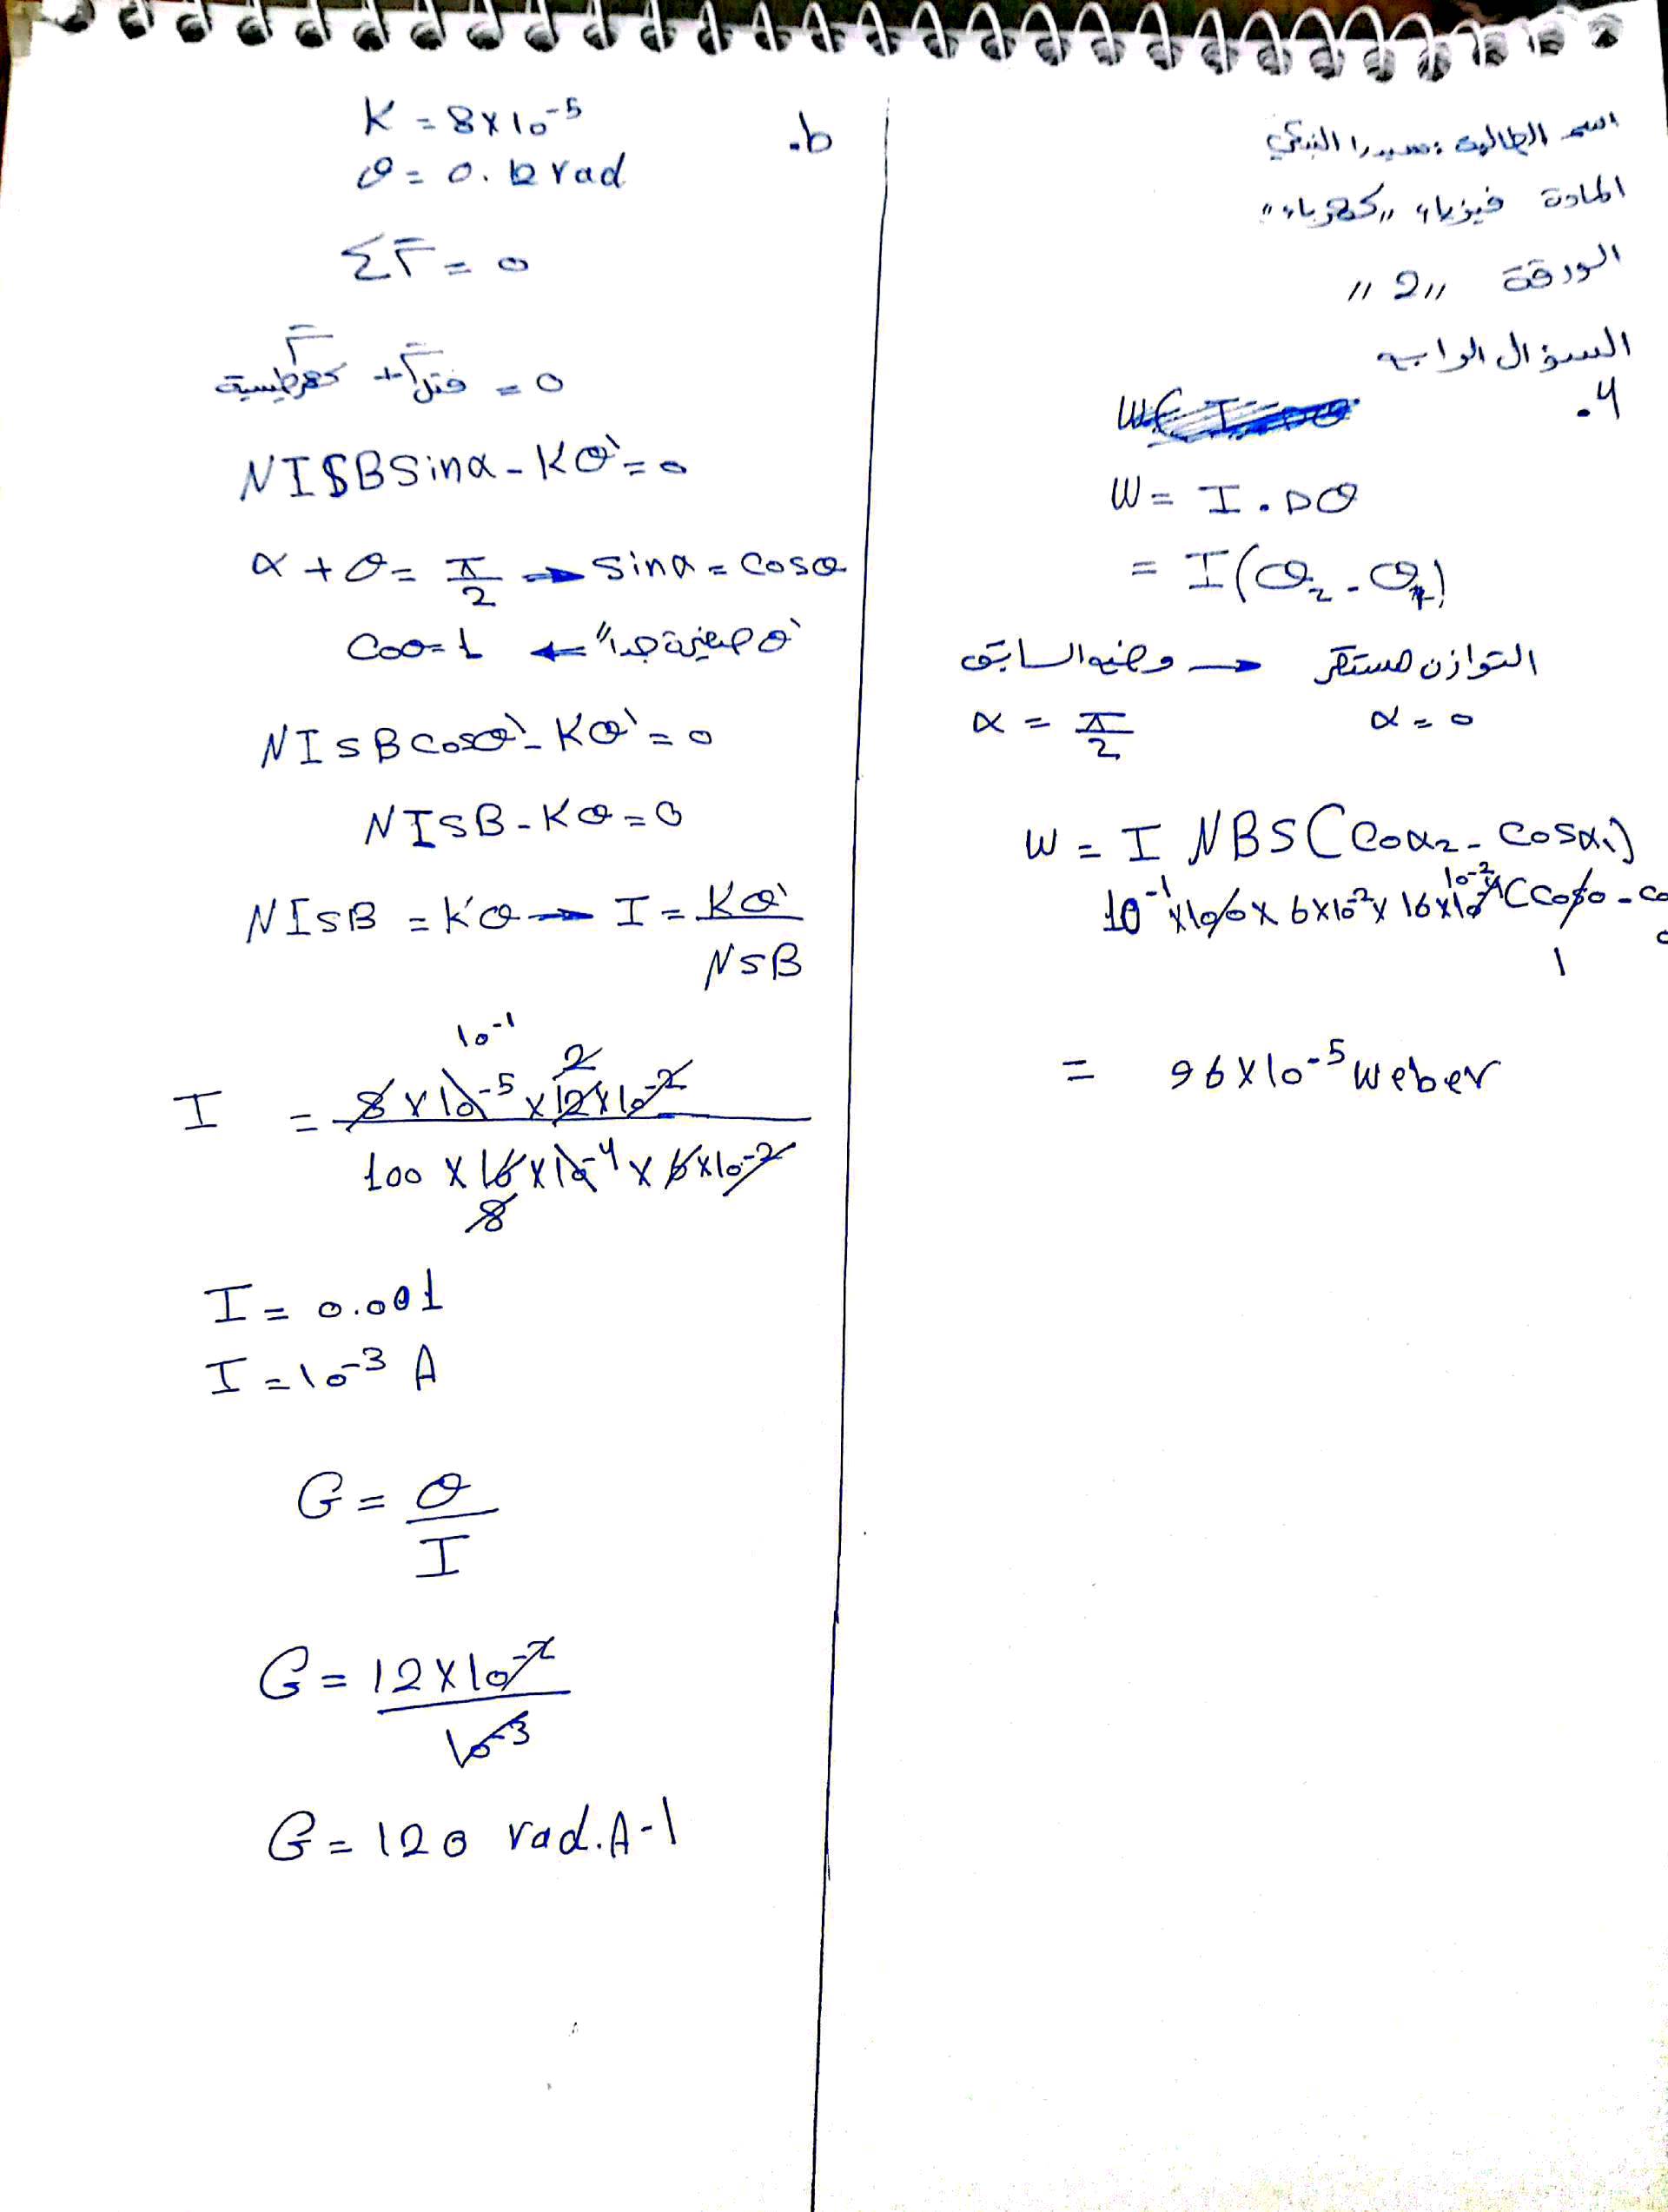 اسم الطالبة : سيدرا النبكي
المادة فيزياء "كهرباء"
الورقة "2"
السؤال الرابع
4.
W = I . Δφ
= I (φ₂ - φ₁)
التوازن مستقر → وضع السابق
α = 0
α = π/2
W = I NBS (Coα₂ - cosα₁)
10⁻¹ × 100 × 6×10⁻² × 16×10⁻⁴ (cos0 - co
10⁻²
1
= 96×10⁻⁵ weber
b.
K = 8×10⁻⁵
θ = 0.12 rad
ΣΓ̄ = 0
Γ̄ كهرطيسية + Γ̄ فتل = 0
NISBsinα - Kθ' = 0
α + θ = π/2 → sinα = cosθ
θ' صغيرة جدا" ← Coθ = 1
NISBcosθ' - Kθ' = 0
NISB - Kθ = 0
NISB = K'θ → I = Kθ'/NSB
10⁻¹
2
I = 8×10⁻⁵ × 12×10⁻² / 100 × 16×10⁻⁴ × 6×10⁻²
8
I = 0.001
I = 10⁻³ A
G = θ/I
G = 12×10⁻²/10⁻³
G = 120 rad.A-1